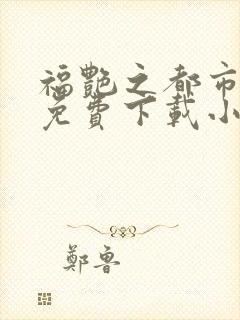 福艷之都市
免費下載小
鄭魯